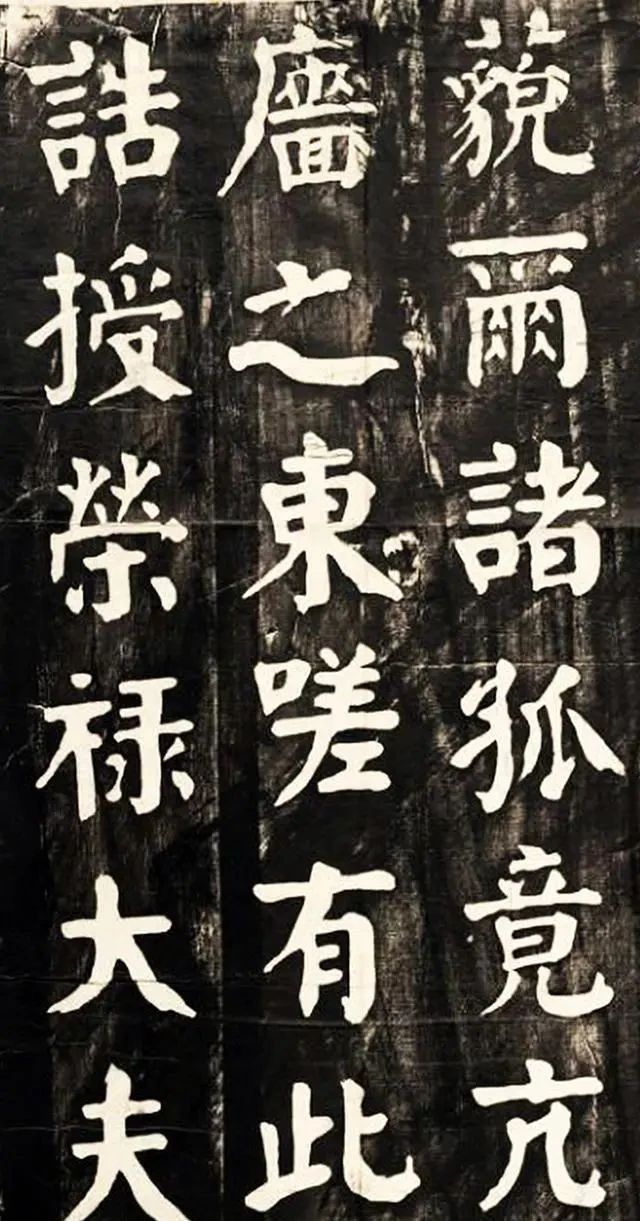 藐爾諸狐竟亢
廧之東嗟有此
誥授榮禄大夫